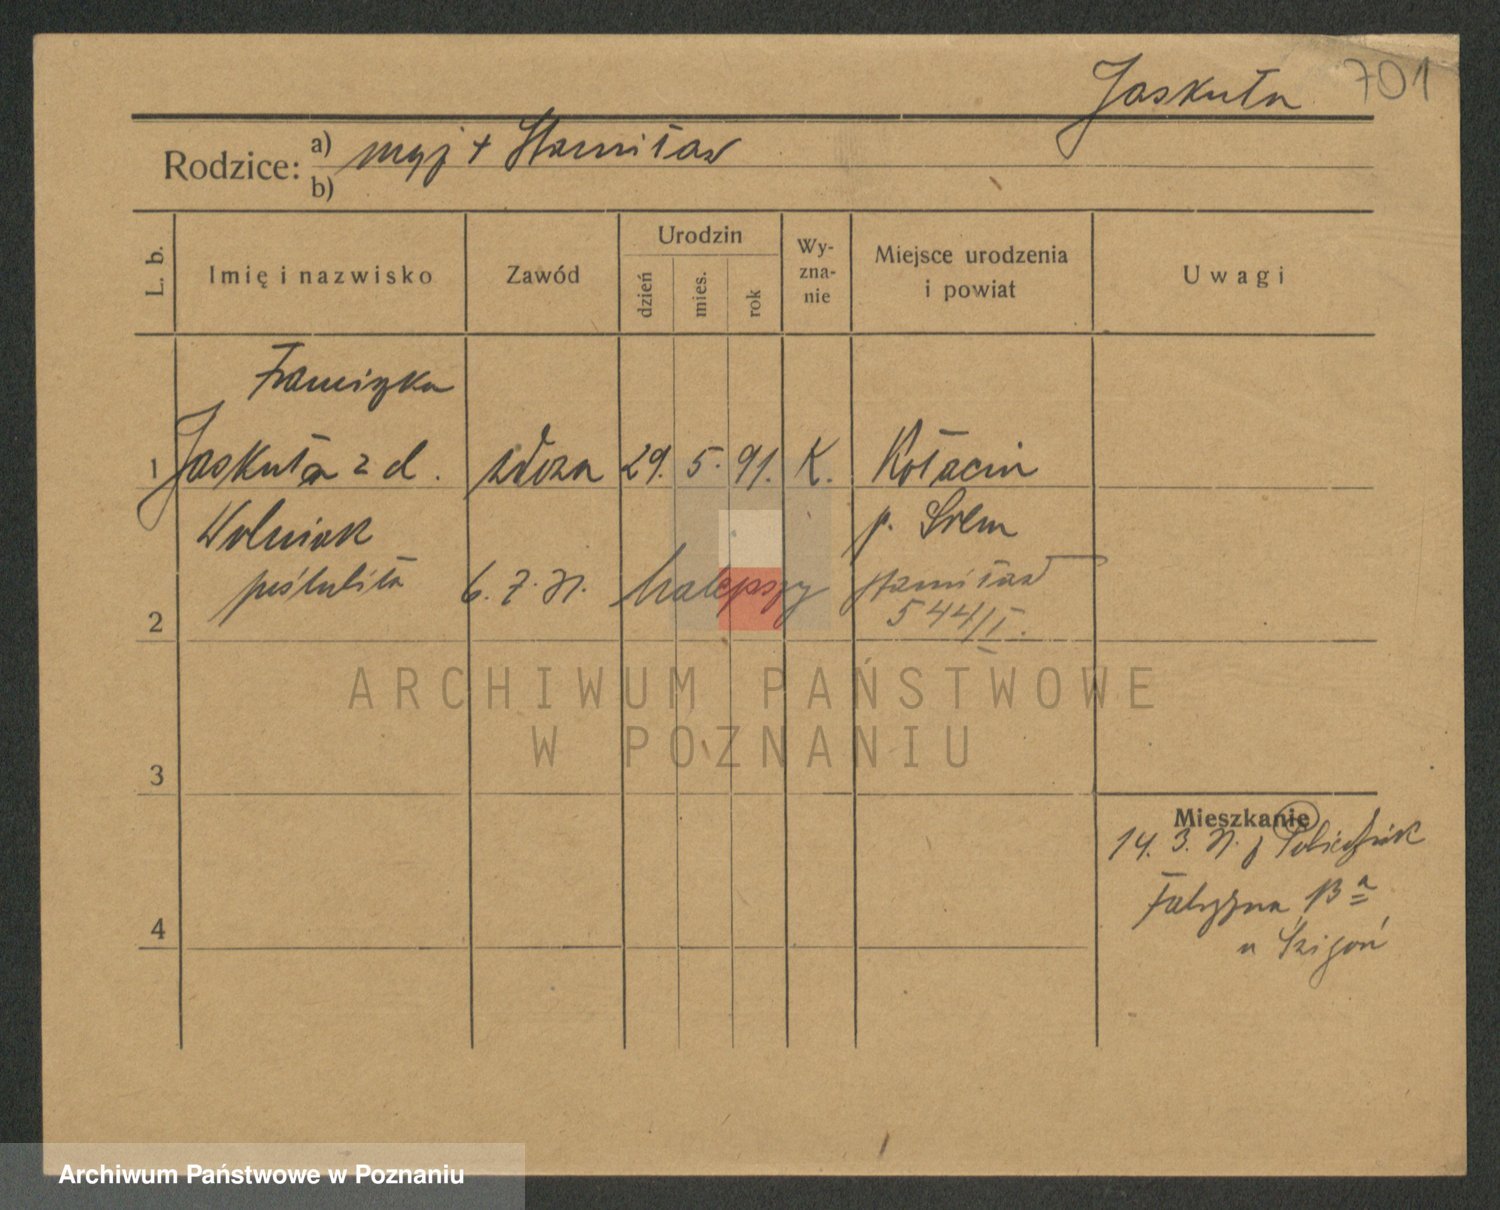 Jaskuła 701
Rodzice: a) mąż + Stanisław
b)
L. b.
Imię i nazwisko
Zawód
Urodzin
dzień
mies.
rok
Wy-
zna-
nie
Miejsce urodzenia
i powiat
Uwagi
Franciszka
1 Jaskuła z d. wdowa 29. 5. 91. K. Kołacin
Wolniak p. Śrem
poślubiła 6. 7. 31. Nalepszy Stanisław
2 544/I.
3
4
Mieszkanie
14. 3. 31.
Fabryczna 13 a
u
ARCHIWUM PAŃSTWOWE
W POZNANIU
Archiwum Państwowe w Poznaniu